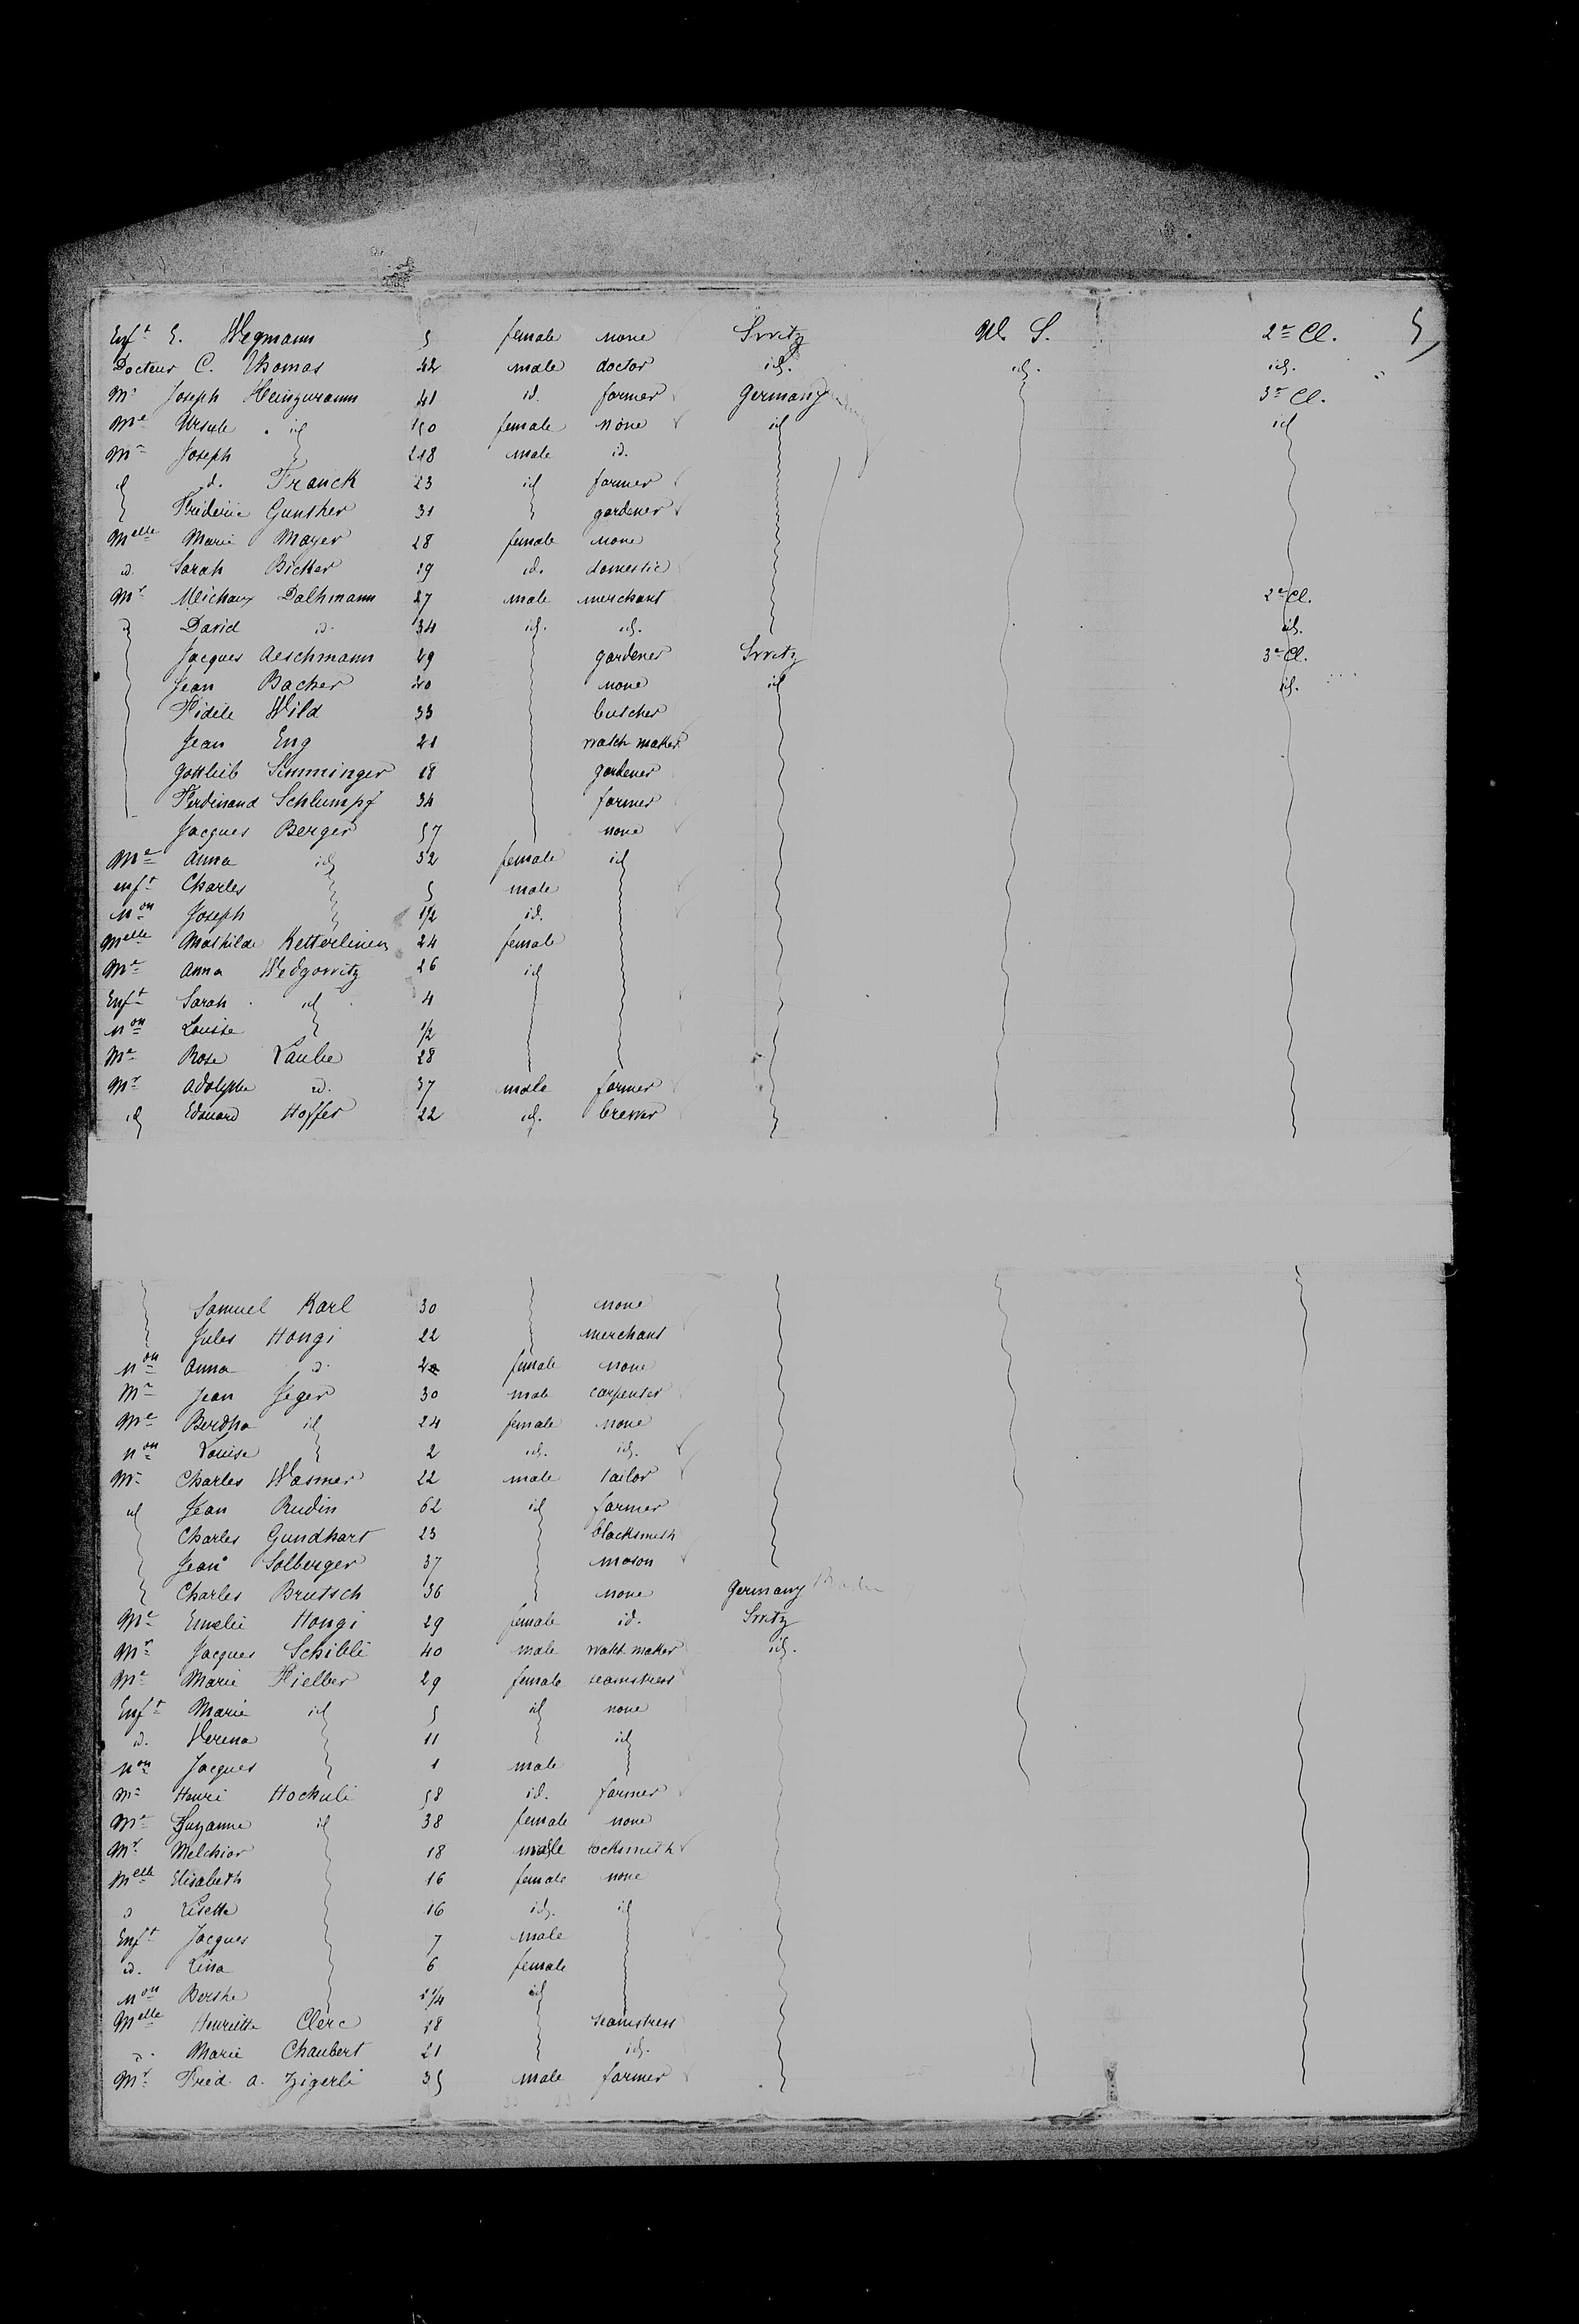 Enft E. Wegmann 5 female none Switz U. S. 2e Cl. 5
Docteur C. Thomas 42 male doctor id. id. id.
Mr Joseph Heinzmann 41 id. farmer Germany 3e Cl.
Me Ursule id 50 female none id id
Mr Joseph 18 male id.
id d. Franck 23 id farmer
Fridéric Gunther 31 gardener
Melle Marie Mayer 28 female none
id. Sarah Bicker 19 id. domestic
Mr Dalhmann 27 male merchant 2e Cl.
id David id. 34 id. id. id.
Jacques Aeschmann 29 gardener Switz 3e Cl.
Jean Bacher 20 none id id.
Fidele Wild 33 butcher
Jean Eng 21 watch maker
Gottlieb Simminger 18 gardener
Ferdinand Schlumpf 34 farmer
Jacques Berger 57 none
Me Anna id 52 female id
enft Charles 5 male
non Joseph 1/2 id.
Melle Mathilde Ketterlinen 24 female
Me Anna Wedgowitz 26 id
Enft Sarah id 4
non Louise 1/2
Me Rose Laube 28
Mr Adolphe id. 37 male farmer
id Edouard Hoffer 22 id. brewer
Samuel Karl 30 none
Jules Hongi 22 merchant
non Anna id. female none
Mr Jean Jeger 30 male carpenter
Me Berdha id 24 female none
non Louise 2 id. id.
Mr Charles Wasmer 22 male tailor
id Jean Rudin 62 id farmer
Charles Gundhart 23 blacksmith
Jean Solberger 37 mason
Charles Brutsch 36 none Germany
Me Emelie Hongi 29 female id. Switz
Mr Jacques Schibli 40 male watch maker id.
Me Marie Fielber 29 female seamstress
Enft Marie id 5 id none
id. Verena 11 id
non Jacques 1 male
Mr Henri Hochuli 58 id. farmer
Me Suzanne id 38 female none
Mr Melchior 18 male locksmith
Melle Elisabeth 16 female none
id Lisette 16 id. id
Enft Jacques 7 male
id. Lina 6 female
non Berthe 1/4 id
Melle Henriette Clerc 28 seamstress
id. Marie Chaubert 21 id.
Mr Fred. A. Zigerli 35 male farmer